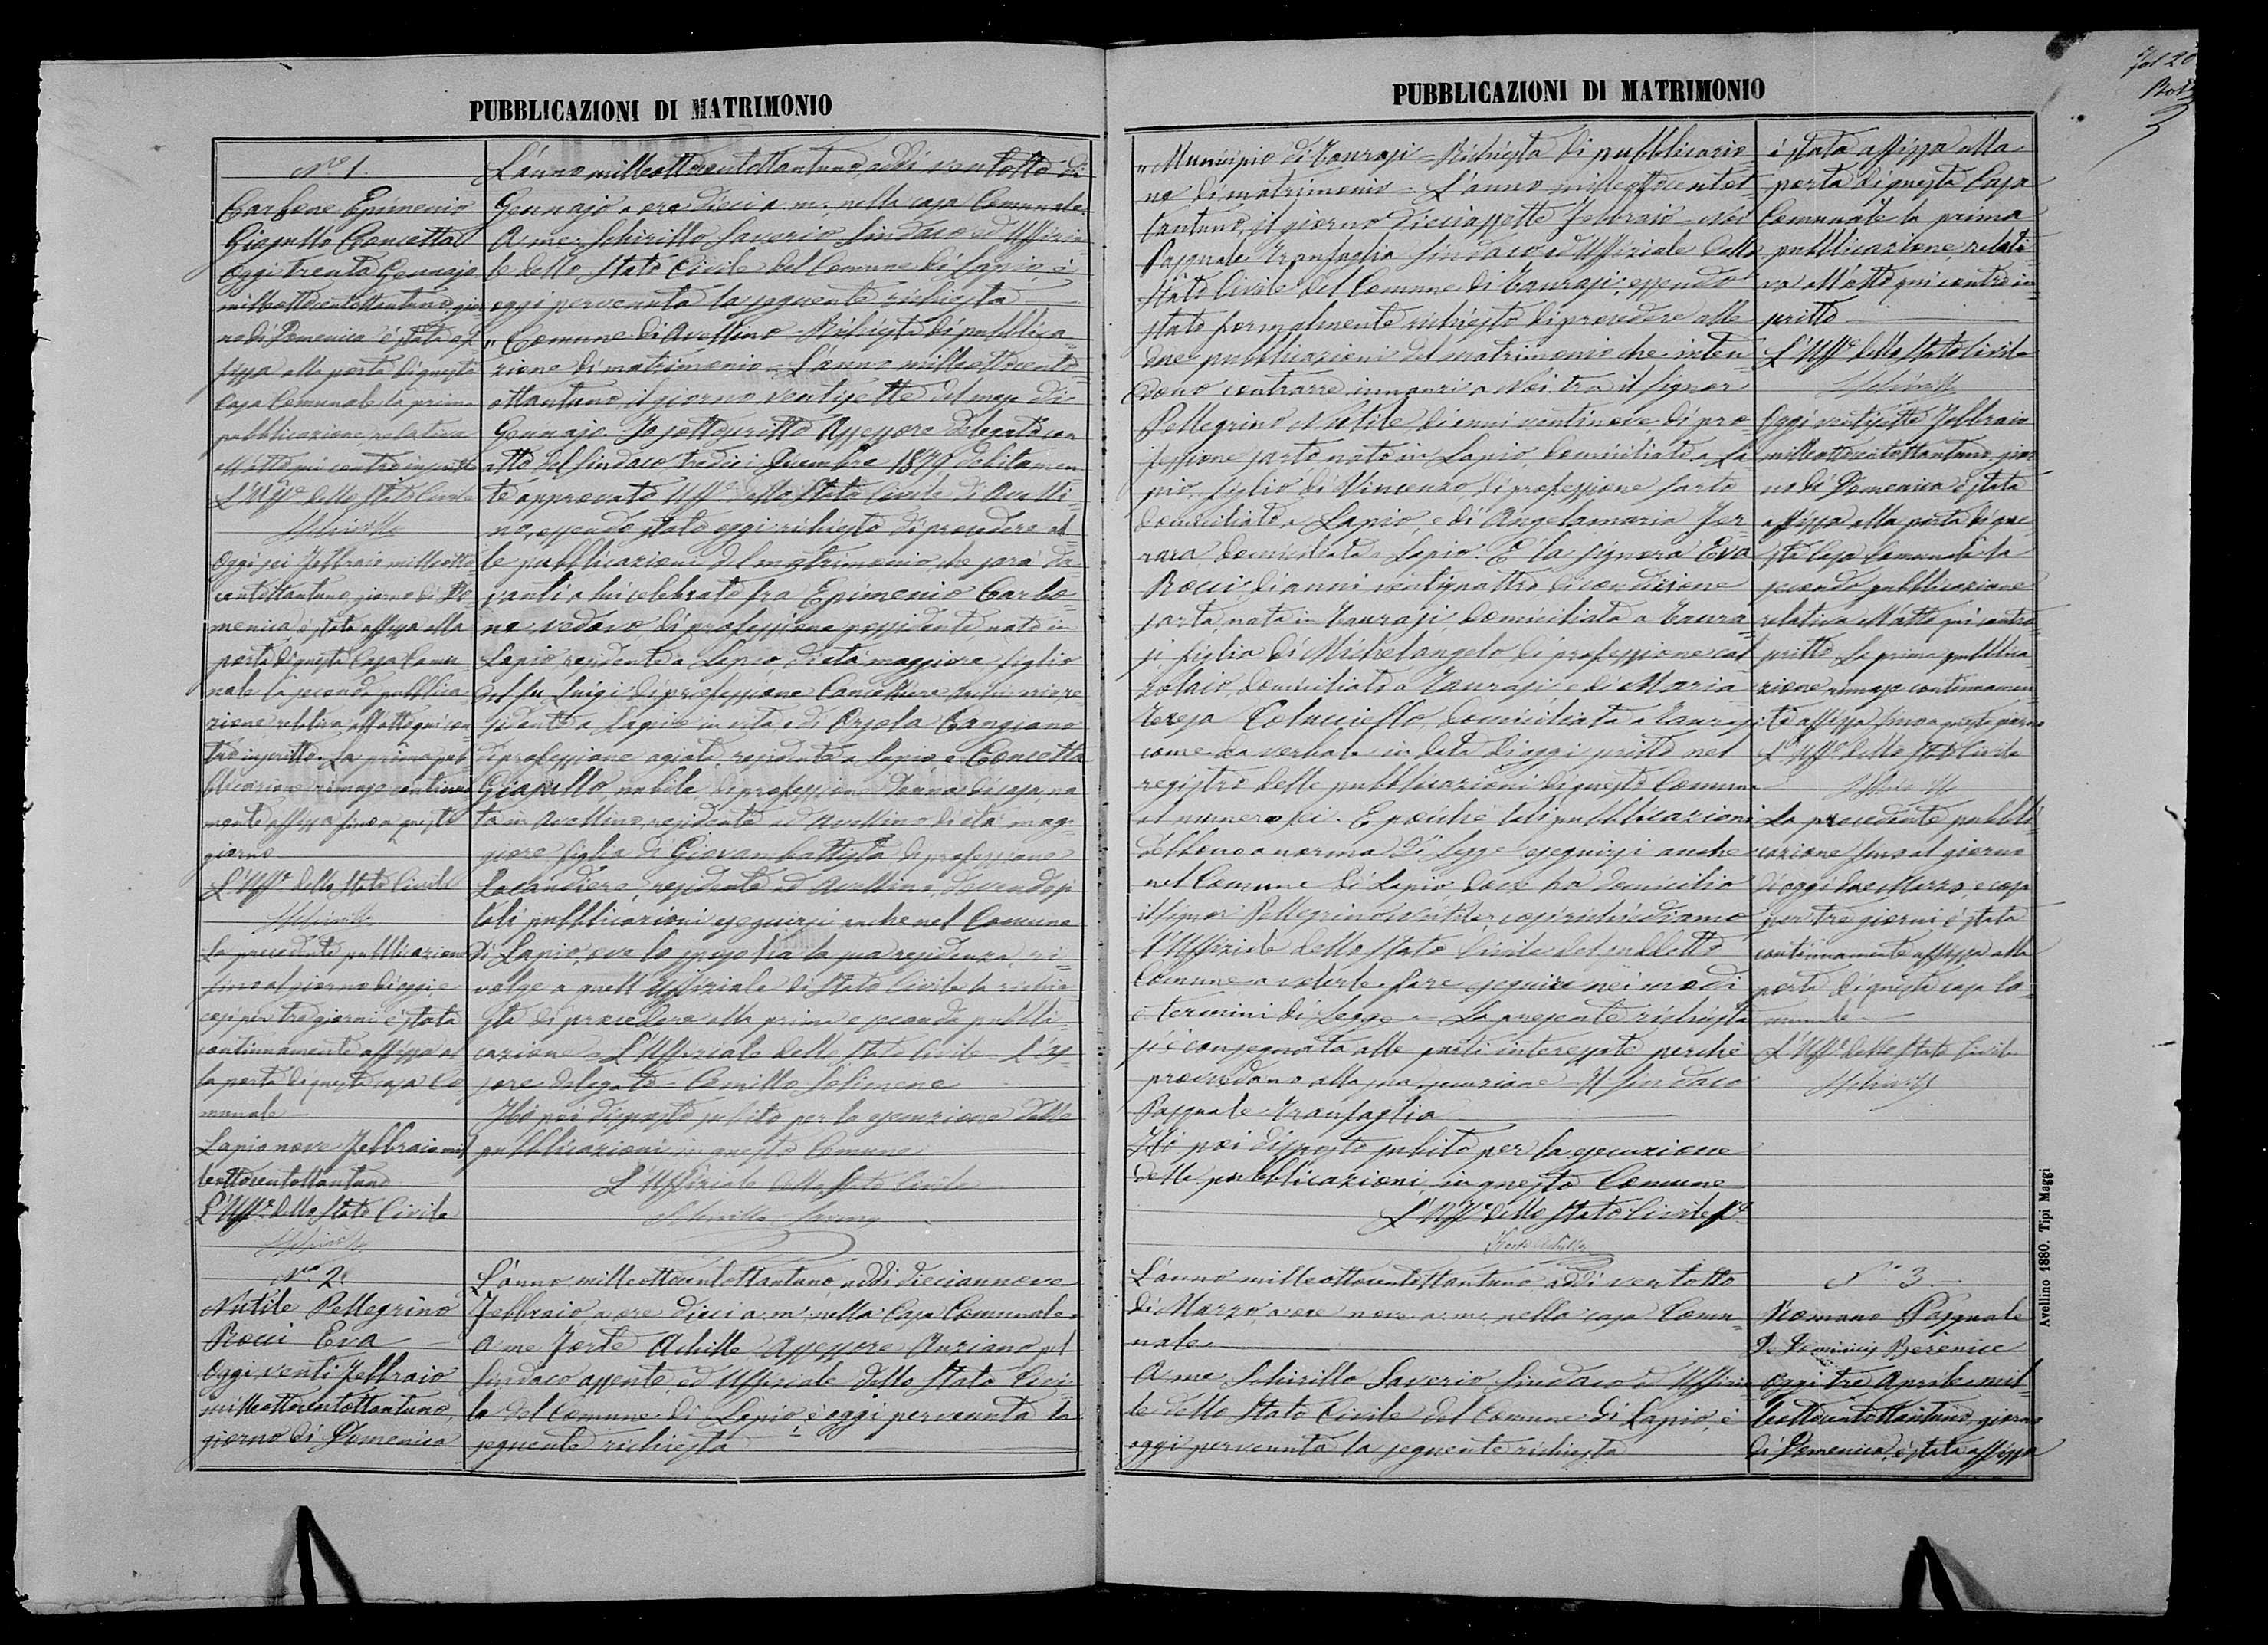 PUBBLICAZIONI DI MATRIMONIO
Nro 1.
Carbone Epimenio
Giasullo Concetta
Oggi trenta Gennajo
milleottocentottantuno gior
no di Domenica è stata af
fissa alla porta di questa
Casa Comunale la prima
pubblicazione relativa
all'atto qui controinscritto
L'Uffle dello Stato Civile
Schirillo
Oggi sei Febbraio milleotto
centottantuno giorno di Do
menica è stata affissa alla
porta di questa Casa Comu
nale la seconda pubblica
zione relativa all'atto qui con
tro inscritto. La prima pub
blicazione rimase continua
mente affissa sino a questo
giorno
L'Uffle dello Stato Civile
Schirillo
La precedente pubblicazione
sino al giorno di oggi, e
così per tre giorni è stata
continuamente affissa al
la porta di questa casa Co
munale
Lapio nove Febbraio mil
leottocentottantuno
L'Uffle dello Stato Civile
Schirillo
L'anno milleottocentottantuno, addì ventotto di
Gennajo a ore dieci a. m. nella casa Comunale.
A me Schirillo Saverio Sindaco ed Uffizia=
le dello Stato Civile del Comune di Lapio, è
oggi pervenuta la seguente richiesta
"Comune di Avellino = Richiesta di pubblica=
zione di matrimonio = L'anno milleottocento
ottantuno il giorno ventisette del mese di
Gennajo. Io sottoscritto Assessore delegato con
atto del Sindaco tredici 1879 debitamen
te approvato Uffle dello Stato Civile di Avelli
no, essendo stato oggi richiesto di procedere al
le pubblicazioni del matrimonio, che sarà da=
vanti a lui celebrato fra Epimenio Carbo=
ne, vedovo, di professione possidente nato in
Lapio residente a Lapio, di età maggiore figlio
del fu Luigi di professione Cancelliere
sidente a Lapio in vita, e di Orsola Cangiano
di professione agiata, residente a Lapio e Concetta
Giasullo, nubile, di professione donna di casa, na
ta in Avellino, residente ad Avellino di età mag=
giore, figlia di Giovambattista di professione
Locandiere, residente ad Avellino, dovendosi
tali pubblicazioni eseguirsi anche nel Comune
di Lapio, ove lo sposo ha la sua residenza, ri=
volge a quell'Uffiziale di Stato Civile la richie=
sta di procedere alla prima e seconda pubbli=
cazione = L'Uffiziale dello Stato Civile L'As
sore delegato = Camillo Solimene
Ho poi disposto subito per la esecuzione delle
pubblicazioni in questo Comune
L'Uffiziale dello Stato Civile
Schirillo Saverio
Nro 2.
Nutile Pellegrino
Rocci Eva
Oggi venti Febbraio
milleottocentottantuno,
giorno di Domenica
L'anno milleottocentottantuno, addì diciannove
Febbraio, a ore dieci a. m. nella Casa Comunale.
A me Forte Achille Assessore Anziano pel
Sindaco assente, ed Uffiziale dello Stato Civi=
le del Comune di Lapio, è oggi pervenuta la
seguente richiesta
PUBBLICAZIONI DI MATRIMONIO
"Municipio di Taurasi = Richiesta di pubblicazio=
ne di matrimonio = L'anno milleottocentot
tantuno, il giorno diciassette Febbraio = Noi
Pasquale Tranfaglia Sindaco ed Uffiziale dello
Stato Civile del Comune di Taurasi, essendo
stato formalmente richiesto di procedere alle
due pubblicazioni del matrimonio che inten
dono contrarre innanzi a Noi tra il Signor
Pellegrino Nutile di anni ventinove, di pro=
fessione sarto nato in Lapio, domiciliato a La=
pio, figlio di Vincenzo, di professione sarto
domiciliato a Lapio, e di Angelamaria Fer=
rara, domiciliata a Lapio. E la signora Eva
Rocci di anni ventiquattro di condizione
sarta, nata in Taurasi domiciliata a Taura=
si figlia di Michelangelo di professione cal
zolaio, domiciliato a Taurasi e di Maria
Teresa Colucciello, domiciliata a Taurasi
come da verbale in data di oggi scritto nel
registro delle pubblicazioni di questo Comune
al numero sei. E poichè tali pubblicazioni
debbono a norma di Legge eseguirsi anche
nel Comune di Lapio dove ha domicilio
il signor Pellegrino Nutile, così richiediamo
l'Uffiziale dello Stato Civile del suddetto
Comune a volerle fare eseguire nei modi
e termini di Legge = La presente richiesta
si è consegnata alle parti interessate perchè
provvedano alla sua esecuzione = Il Sindaco
Pasquale Tranfaglia
Ho poi disposto subito per la esecuzione
delle pubblicazioni in questo Comune
L'Uffle dello Stato Civile
Forte Achille
è stata affissa alla
porta di questa Casa
Comunale la prima
pubblicazione, relati
va all'atto qui contro in=
scritto
L'Uffle dello Stato Civile
Schirillo
Oggi ventisette Febbraio
milleottocentottantuno, gior
no di Domenica è stata
affissa alla porta di que
sta Casa Comunale la
seconda pubblicazione
relativa all'atto qui contro
scritto. La prima pubblica
zione rimase continuamen
te affissa sino a questo giorno
L'Uffle dello Stato Civile
Schirillo
La precedente pubbli=
cazione sino al giorno
di oggi due Marzo, e così
per tre giorni è stata
continuamente affissa alla
porta di questa casa Co=
munale
L'Uffle dello Stato Civile
Schirillo
L'anno milleottocentottantuno addì ventotto
di Marzo, a ore nove a. m. nella casa Comu=
nale
A me Schirillo Saverio Sindaco ed Uffizia
le dello Stato Civile del Comune di Lapio, è
oggi pervenuta la seguente richiesta
No 3
Romano Pasquale
De Dominicis Berenice
Oggi tre Aprile mil
leottocentottantuno, giorno
di Domenica, è stata affissa
Avellino 1880. Tipi Maggi